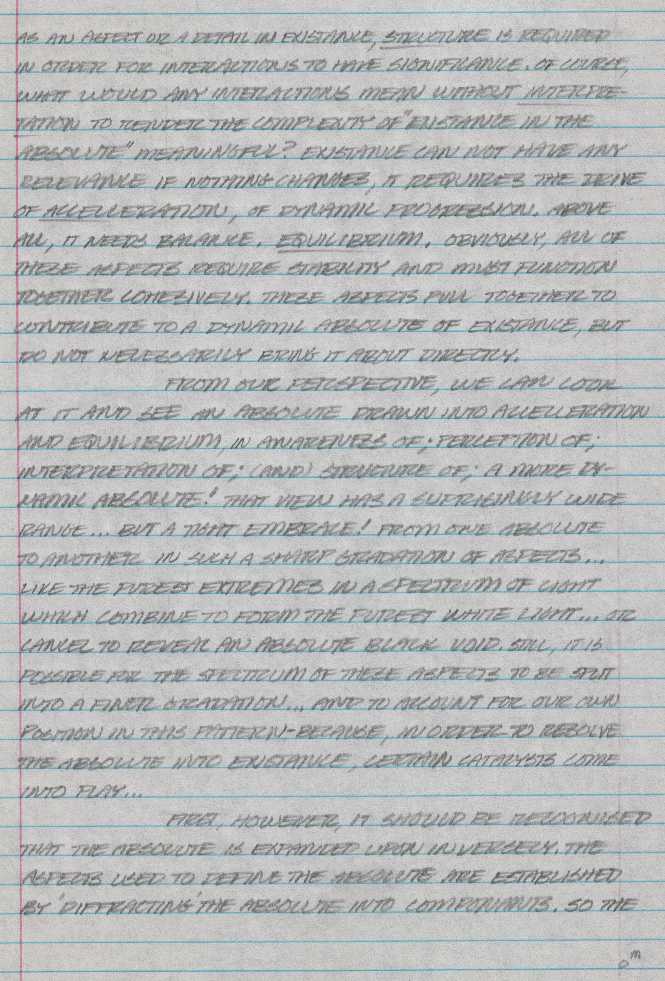 AS AN ASPECT OR A DETAIL IN EXISTANCE, STRUCTURE IS REQUIRED
IN ORDER FOR INTERACTIONS TO HAVE SIGNIFICANCE. OF COURSE,
WHAT WOULD ANY INTERACTIONS MEAN WITHOUT INTERPRE-
TATION TO RENDER THE COMPLEXITY OF "EXISTANCE IN THE
ABSOLUTE" MEANINGFUL? EXISTANCE CAN NOT HAVE ANY
RELEVANCE IF NOTHING CHANGES, IT REQUIRES THE DRIVE
OF ACCELLERATION, OF DYNAMIC PROGRESSION. ABOVE
ALL, IT NEEDS BALANCE. EQUILIBRIUM. OBVIOUSLY, ALL OF
THESE ASPECTS REQUIRE STABILITY AND MUST FUNCTION
TOGETHER COHESIVELY. THESE ASPECTS PULL TOGETHER TO
CONTRIBUTE TO A DYNAMIC ABSOLUTE OF EXISTANCE, BUT
DO NOT NECESSARILY BRING IT ABOUT DIRECTLY.
FROM OUR PERSPECTIVE, WE CAN LOOK
AT IT AND SEE AN ABSOLUTE DRAWN INTO ACCELLERATION
AND EQUILIBRIUM, IN AWARENESS OF; PERCEPTION OF;
INTERPRETATION OF; (AND) STRUCTURE OF; A MORE DY-
NAMIC ABSOLUTE! THAT VIEW HAS A SUPRISINGLY WIDE
RANGE... BUT A TIGHT EMBRACE! FROM ONE ABSOLUTE
TO ANOTHER IN SUCH A SHARP GRADATION OF ASPECTS...
LIKE THE PUREST EXTREMES IN A SPECTRUM OF LIGHT
WHICH COMBINE TO FORM THE PUREST WHITE LIGHT... OR
CANCEL TO REVEAL AN ABSOLUTE BLACK VOID. STILL, IT IS
POSSIBLE FOR THE SPECTRUM OF THESE ASPECTS TO BE SPLIT
INTO A FINER GRADATION... AND TO ACCOUNT FOR OUR OWN
POSITION IN THIS PATTERN-BECAUSE, IN ORDER TO RESOLVE
THE ABSOLUTE INTO EXISTANCE, CERTAIN CATALYSTS COME
INTO PLAY...
FIRST, HOWEVER, IT SHOULD BE RECOGNISED
THAT THE ABSOLUTE IS EXPANDED UPON INVERSELY. THE
ASPECTS USED TO DEFINE THE ABSOLUTE ARE ESTABLISHED
BY 'DIFFRACTING' THE ABSOLUTE INTO COMPONANTS. SO THE